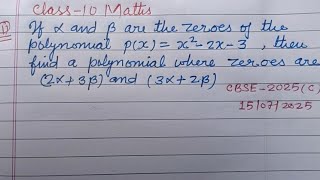 Class-10 Maths
If α and β are the zeroes of the
polynomial P(x) = x²-2x-3 , then
find a polynomial where zeroes are
(2α+3β) and (3α+2β)
CBSE-2025(C)
15/07/2025